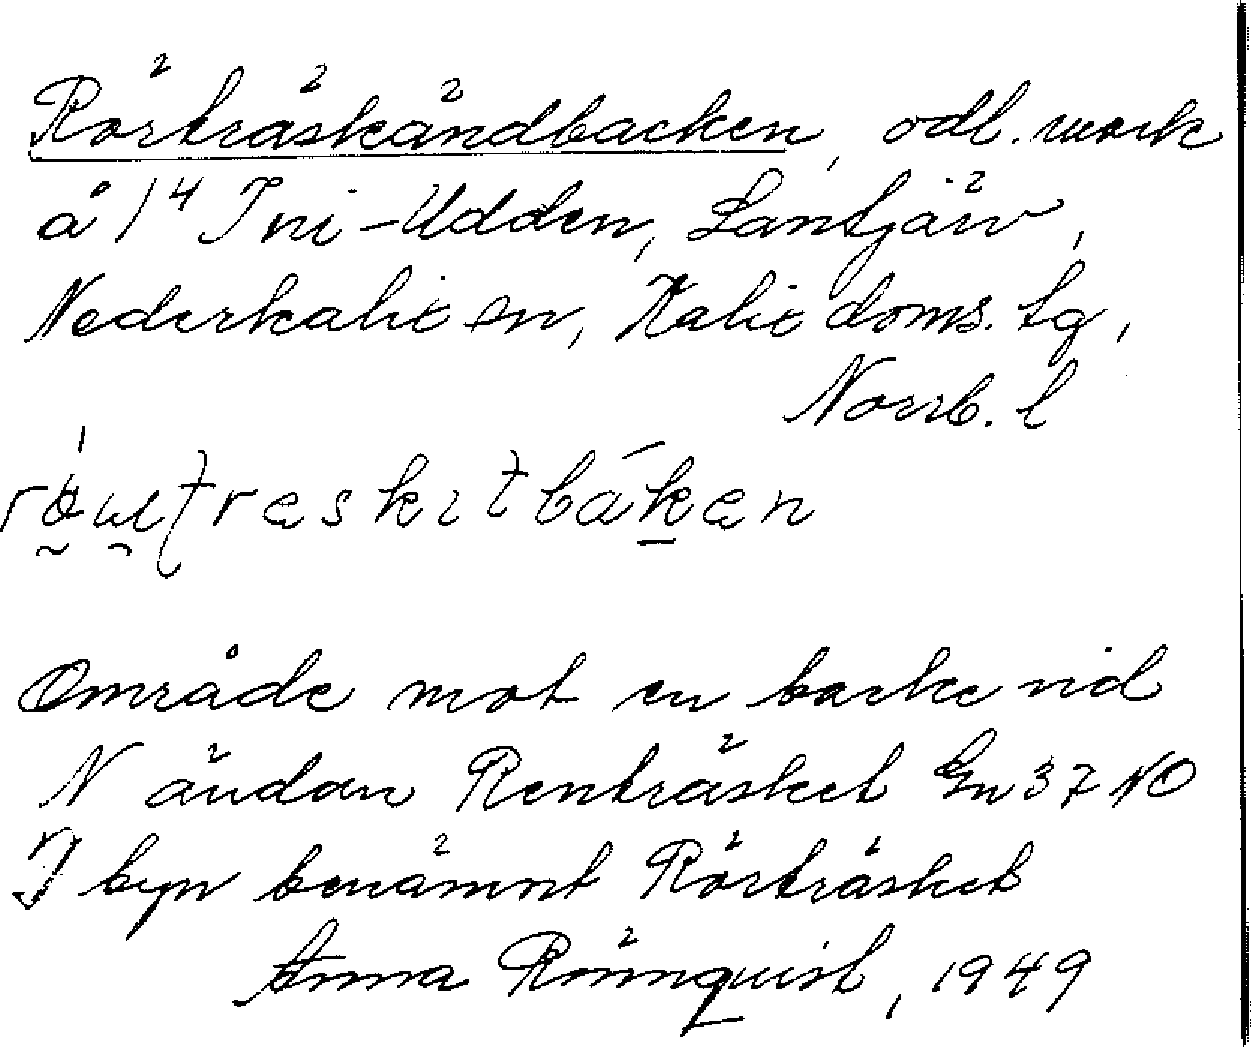 Rörträskändbacken, odl. mark
å 1⁴ Ini-Udden, Lantjärv,
Nederkalix sn, Kalix doms. tg,
Norrb. l
Område mot en backe vid
N ändan Renträsket Gn 37 NO
I byn benämnt Rörträsket
Anna Rönnquist, 1949